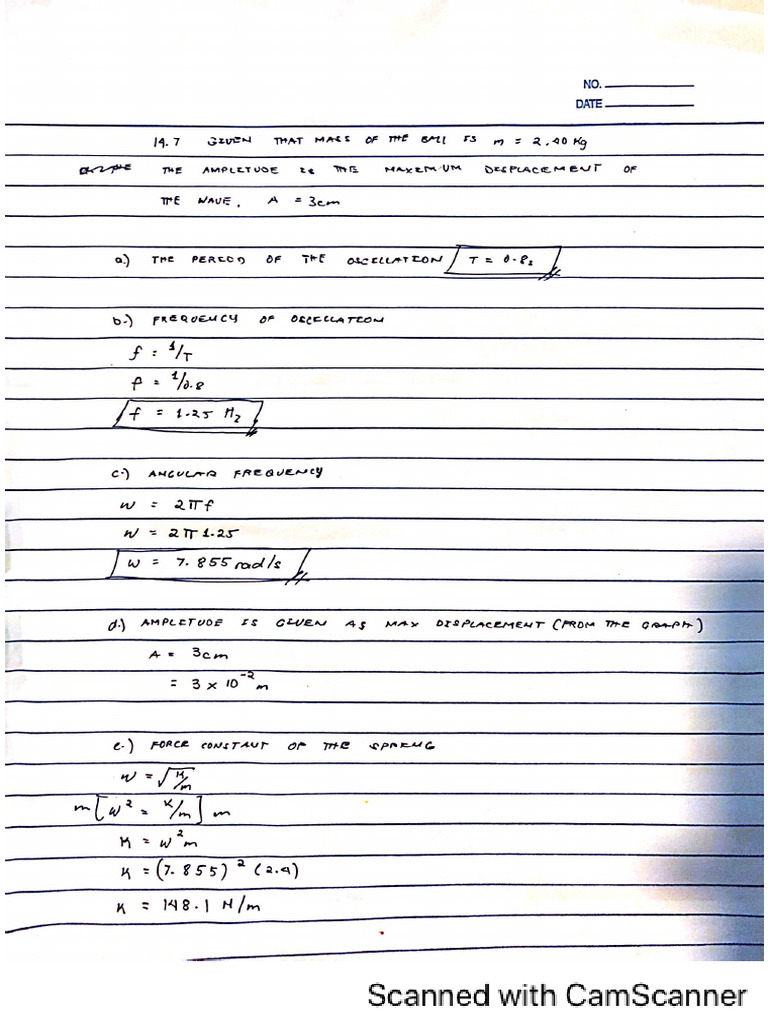 NO.
DATE
14.7 GIVEN THAT MASS OF THE BALL IS m = 2.40 Kg
THE AMPLITUDE IS THE MAXIMUM DISPLACEMENT OF
THE WAVE, A = 3cm
a.) THE PERIOD OF THE OSCILLATION T = 0.8s
b.) FREQUENCY OF OSCILLATION
f = 1/T
f = 1/0.8
f = 1.25 Hz
c.) ANGULAR FREQUENCY
w = 2πf
w = 2π 1.25
w = 7.855 rad/s
d.) AMPLITUDE IS GIVEN AS MAX DISPLACEMENT (FROM THE GRAPH)
A = 3cm
= 3 x 10⁻² m
e.) FORCE CONSTANT OF THE SPRING
w = √K/m
m [w² = K/m] m
K = w²m
K = (7.855)² (2.4)
K = 148.1 N/m
Scanned with CamScanner